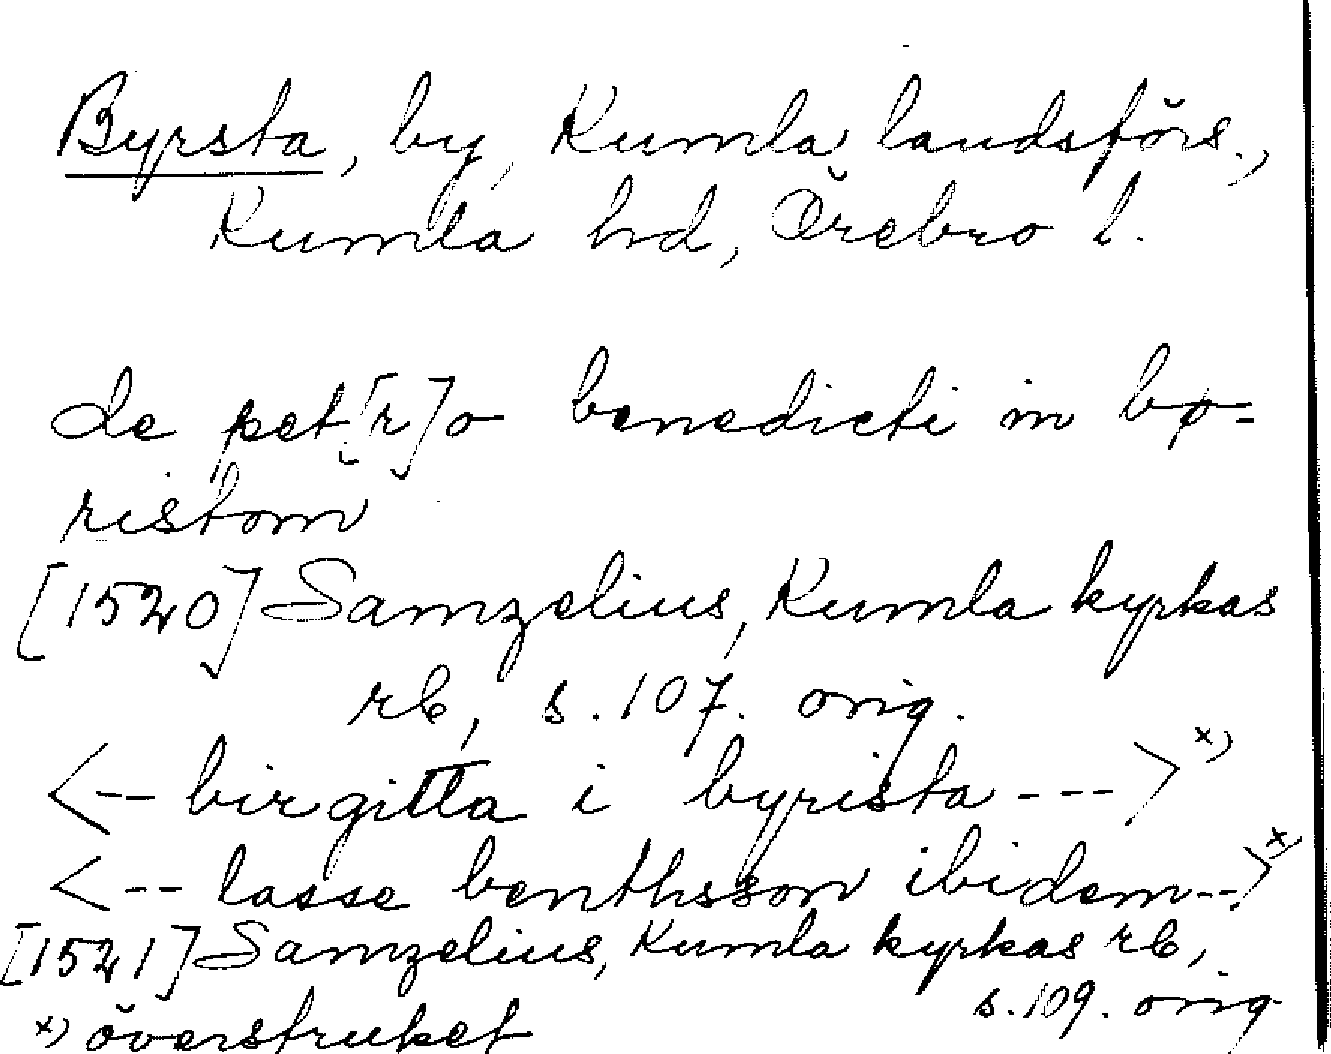 Byrsta, by, Kumla landsförs.,
Kumla hd, Örebro l.
de pet[r]o benedicti in bø-
ristom
[1520] Samzelius, Kumla kyrkas
rb, s. 107. orig.
<-- birgitta i byrista --->x)
<-- lasse benthsson ibidem-->x)
[1521] Samzelius, Kumla kyrkas rb,
s. 109. orig
x) överstruket